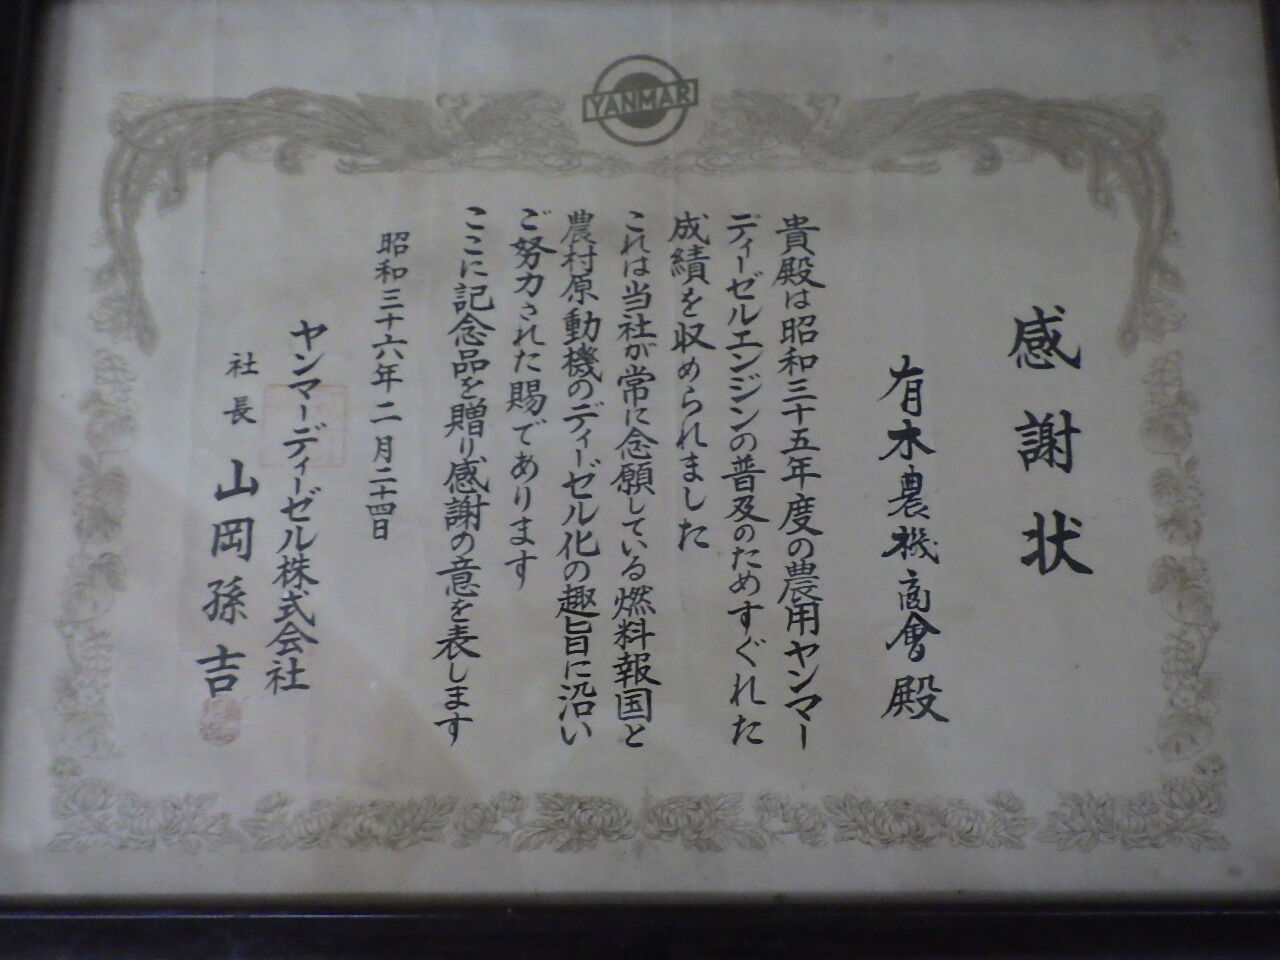 YANMAR
感謝状
有木農機商會殿
貴殿は昭和三十五年度の農用ヤンマー
ディーゼルエンジンの普及のためすぐれた
成績を収められました
これは当社が常に念願している燃料報国と
農村原動機のディーゼル化の趣旨に沿い
ご努力された賜であります
ここに記念品を贈り感謝の意を表します
昭和三十六年二月二十四日
ヤンマーディーゼル株式会社
社長 山岡孫吉